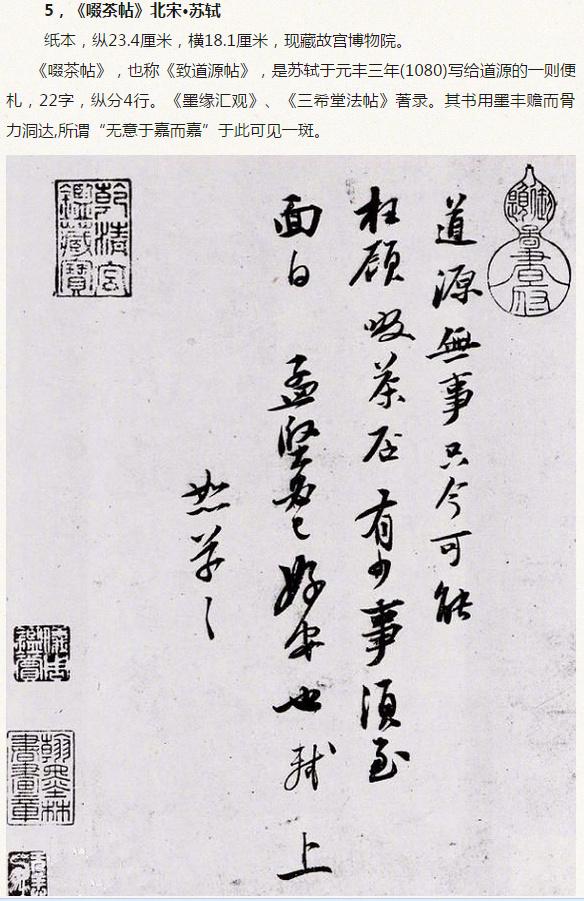 5，《啜茶帖》北宋•苏轼
纸本，纵23.4厘米，横18.1厘米，现藏故宫博物院。
《啜茶帖》，也称《致道源帖》，是苏轼于元丰三年(1080)写给道源的一则便
札，22字，纵分4行。《墨缘汇观》、《三希堂法帖》著录。其书用墨丰赡而骨
力洞达,所谓“无意于嘉而嘉”于此可见一斑。
道源無事只今可能
枉顧啜茶否有少事須至
面白 孟堅必已好安也 軾 上
恕草々
乾清宮
鑑藏寶
儀周
鑑賞
翰墨林
書畫章